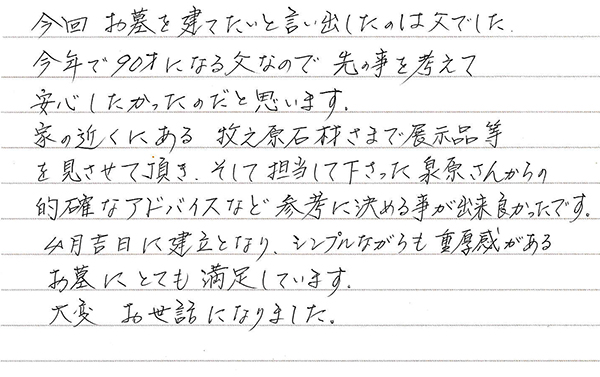 今回 お墓を建てたいと言い出したのは父でした.
今年で90才になる父なので 先の事を考えて
安心したかったのだと思います.
家の近くにある 牧之原石材さまで展示品等
を見させて頂き、そして担当して下さった泉原さんからの
的確なアドバイスなど 参考に決める事が出来良かったです。
4月吉日に建立となり、シンプルながらも重厚感がある
お墓に とても満足しています.
大変 お世話になりました。